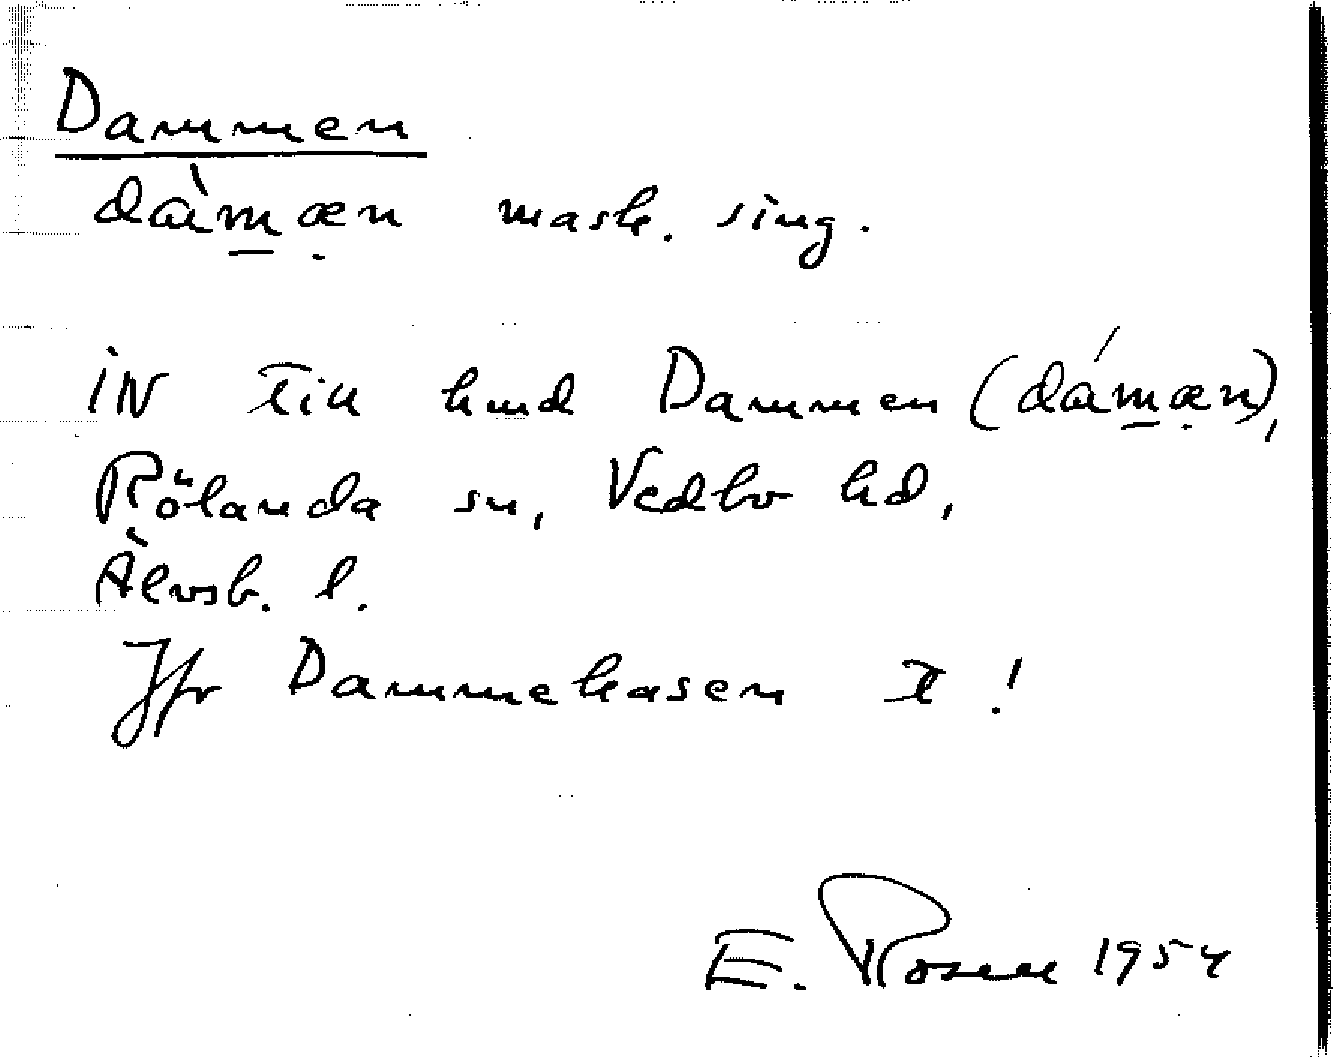 Dammen
dàmæn mask. sing.
IN till hmd Dammen (dámæn),
Rölanda sn, Vedbo hd,
Älvsb. l.
Jfr Dammekasen I !
E. Rosell 1954